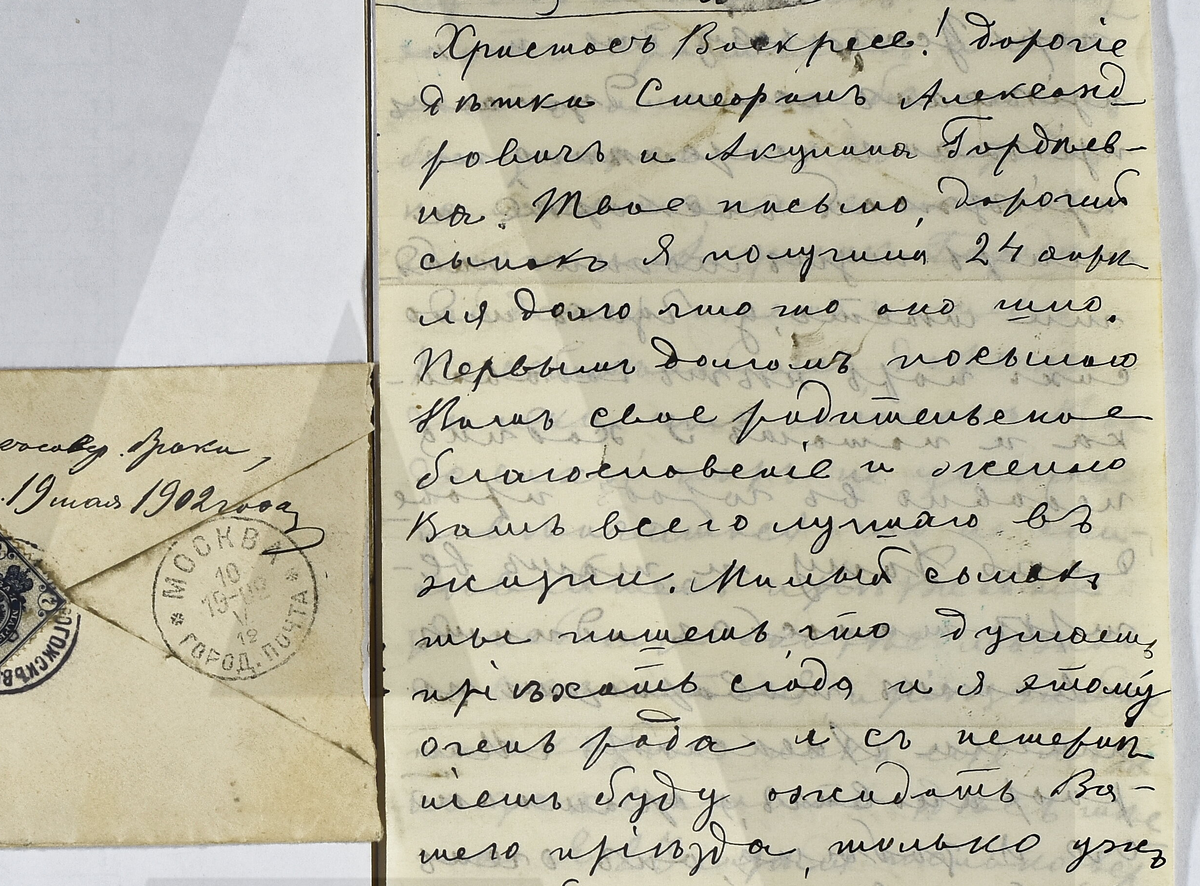 Христосъ Воскресе! дорогіе
дѣтки Стефанъ Александ
ровичъ и Акулина Гордѣев-
на. Твое письмо, дорогій
сынокъ я получила 24 апрѣ
ля долго что то оно шло.
Первымъ долгомъ посылаю
Вамъ свое родительское
благословеніе и желаю
Вамъ всего лучшаго въ
жизни. Милый сынокъ
ты пишешь, что думаешь
пріѣхать сюда и я этому
очень рада и съ нетерпѣ
ніемъ буду ожидать Ва-
шего пріѣзда, только ужъ
19 мая 1902 года
МОСКВА
10
ГОРОД. ПОЧТА